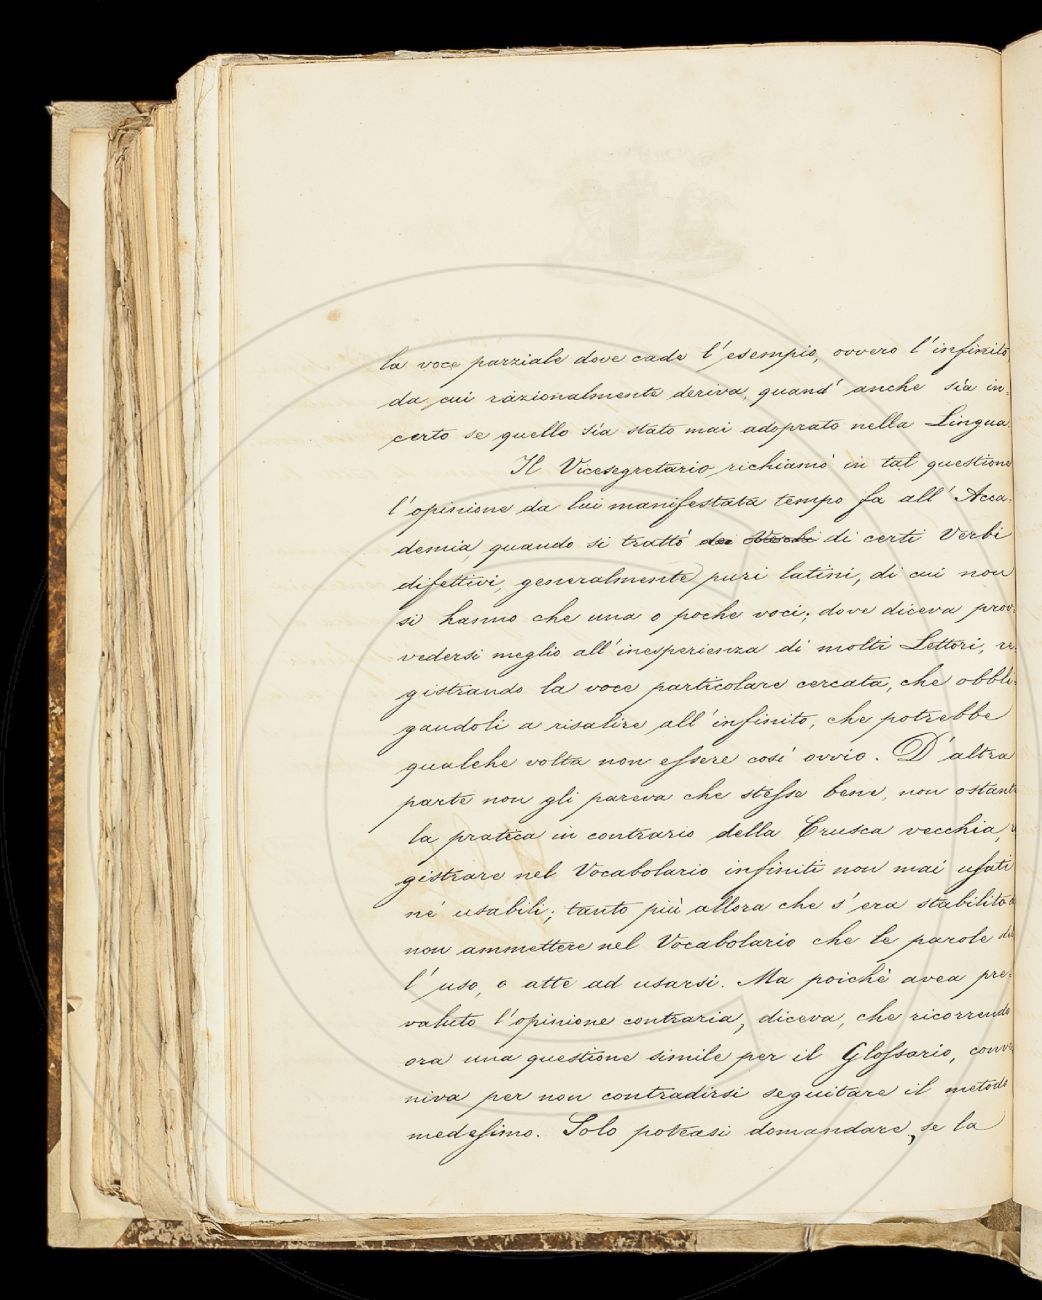 la voce parziale dove cade l'esempio, ovvero l'infinito
da cui razionalmente deriva, quand'anche sia in=
certo se quello sia stato mai adoprato nella Lingua.
Il Vicesegretario richiamò in tal questione
l'opinione da lui manifestata tempo fa all'Acca=
demia, quando si trattò dei Verbi di certi Verbi
difettivi, generalmente puri latini, di cui non
si hanno che una o poche voci; dove diceva prov=
vedersi meglio all'inesperienza di molti Lettori, re=
gistrando la voce particolare cercata, che obbli=
gandoli a risalire all'infinito, che potrebbe
qualche volta non essere così ovvio. D'altra
parte non gli pareva che stesse bene, non ostante
la pratica in contrario della Crusca vecchia,
gistrare nel Vocabolario infiniti non mai usati
né usabili; tanto più allora che s'era stabilito
non ammettere nel Vocabolario che le parole
l'uso, o atte ad usarsi. Ma poichè avea pre=
valuto l'opinione contraria, diceva, che ricorrendo
ora una questione simile per il Glossario, conve=
niva per non contradirsi seguitare il metodo
medesimo. Solo poteasi domandare, se la